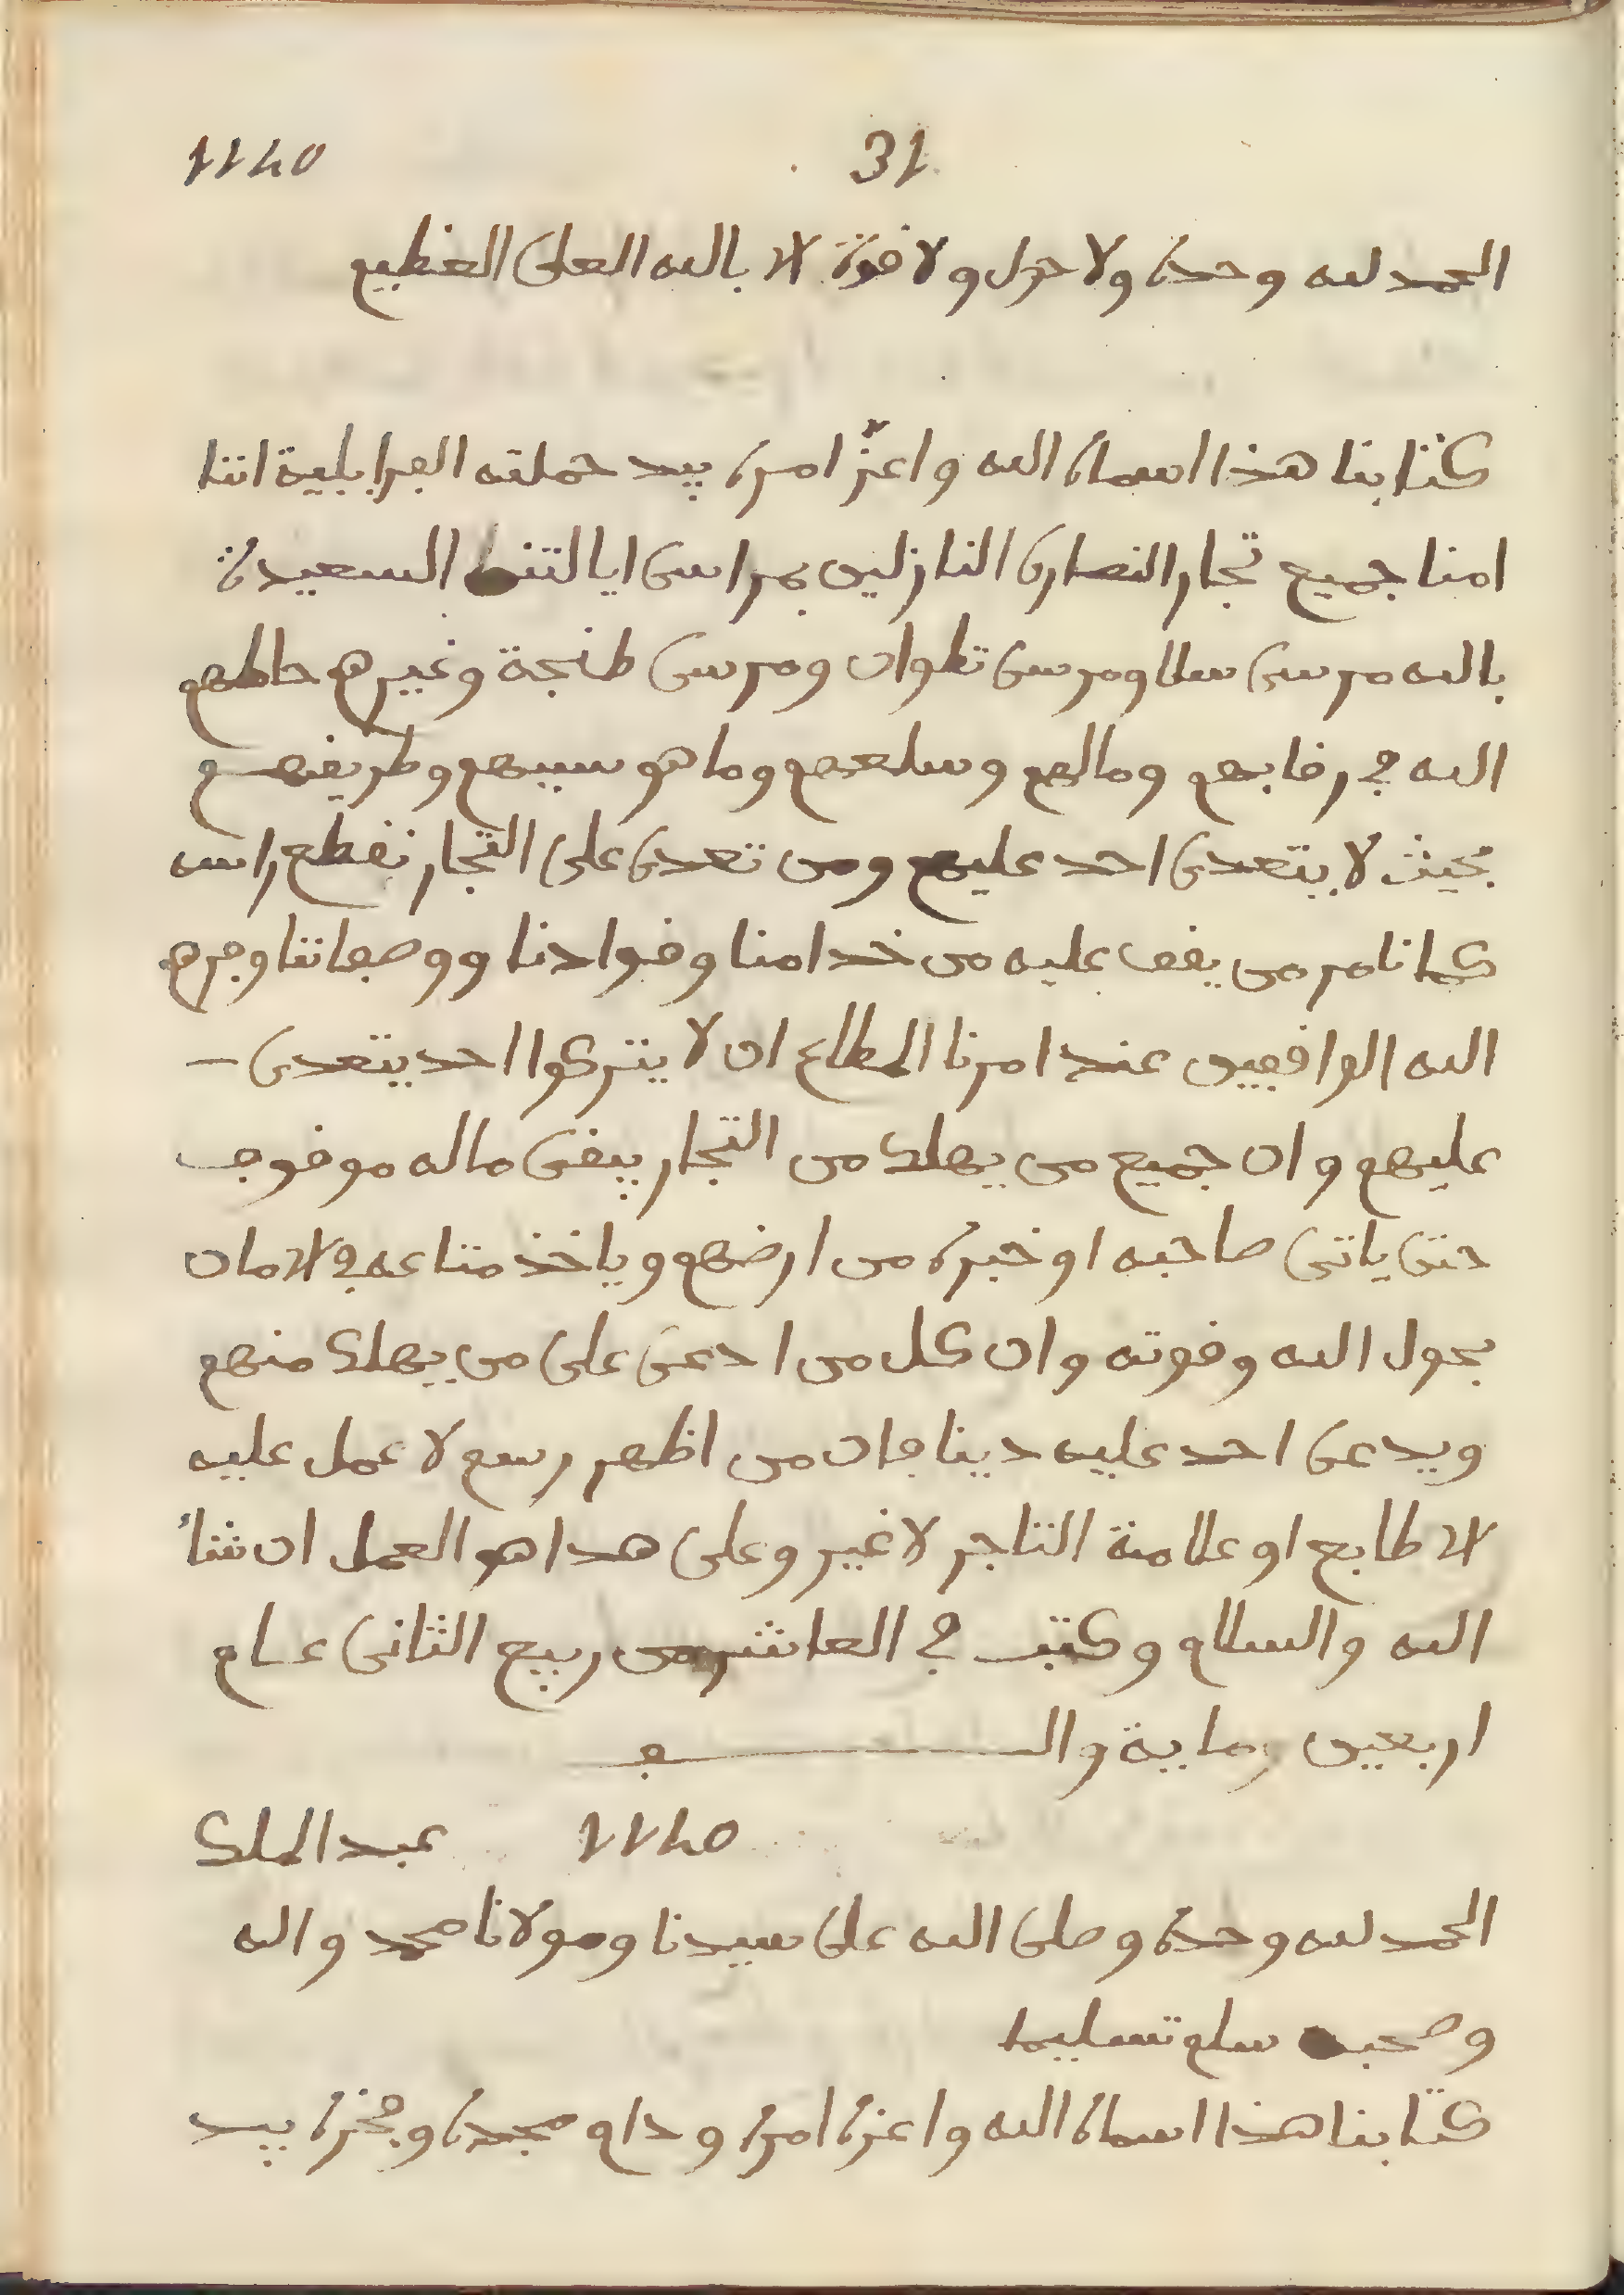 1140 31
الحمد لله وحده ولا حول ولا قوة الا بالله العلى العظيم
كتابنا هذا اسماه الله واعزّ امره بيد حملته الفرايلية اننا
امنا جميع تجار النصارى النازلين بمراسى ايالتنا السعيدة
بالله مرسى سلا ومرسى تطوان ومرسى طنجة وغيرهم حاطهم
الله في رقابهم ومالهم وسلعهم وما هو سببهم وطريقهم
بحيث لا يتعدى احد عليهم ومن تعدى على التجار نقطع راسه
كما نامر من يقف عليه من خدامنا وقوادنا ووصفاننا وفرهم
الله الواقفين عند امرنا المطاع ان لا يتركوا احد يتعدى
عليهم وان جميع من يهلك من التجار يبقى ماله موقوف
حتى ياتى صاحبه او خبره من ارضهم وياخذ متاعه في الامان
بحول الله وقوته وان كل من ادعى على من يهلك منهم
ويدعى احد عليه دينا فان من اظهر رسم لا عمل عليه
الا طابع او علامة التاجر لا غير وعلى هدا هو العمل ان شاء
الله والسلام وكتب في العاشر من ربيع الثانى عام
اربعين وماية والف
1140 عبد الملك
الحمد لله وحده وصلى الله على سيدنا ومولانا محمد واله
وصحبه سلم تسليما
كتابنا هذا اسماه الله واعزه امره ودام مجده وفخره بيد